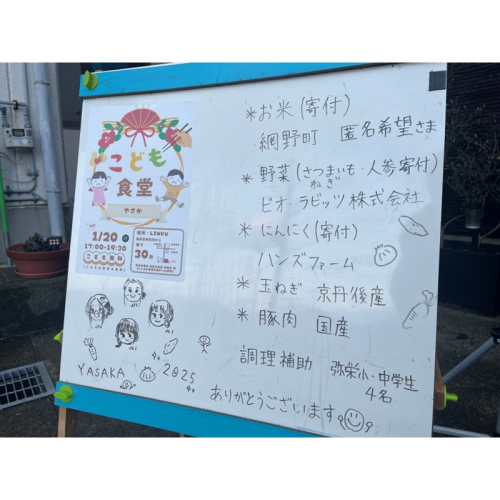 こども
食堂
やさか
1/20
17:00-19:30
場所：LINKU
こども無料
30
YASAKA 2025
*お米(寄付)
網野町 匿名希望さま
*野菜(さつまいも・人参寄付)
ねぎ
ビオ・ラビッツ株式会社
*にんにく(寄付)
ハンズファーム
*玉ねぎ 京丹後産
*豚肉 国産
調理補助 弥栄小・中学生
4名
ありがとうございます